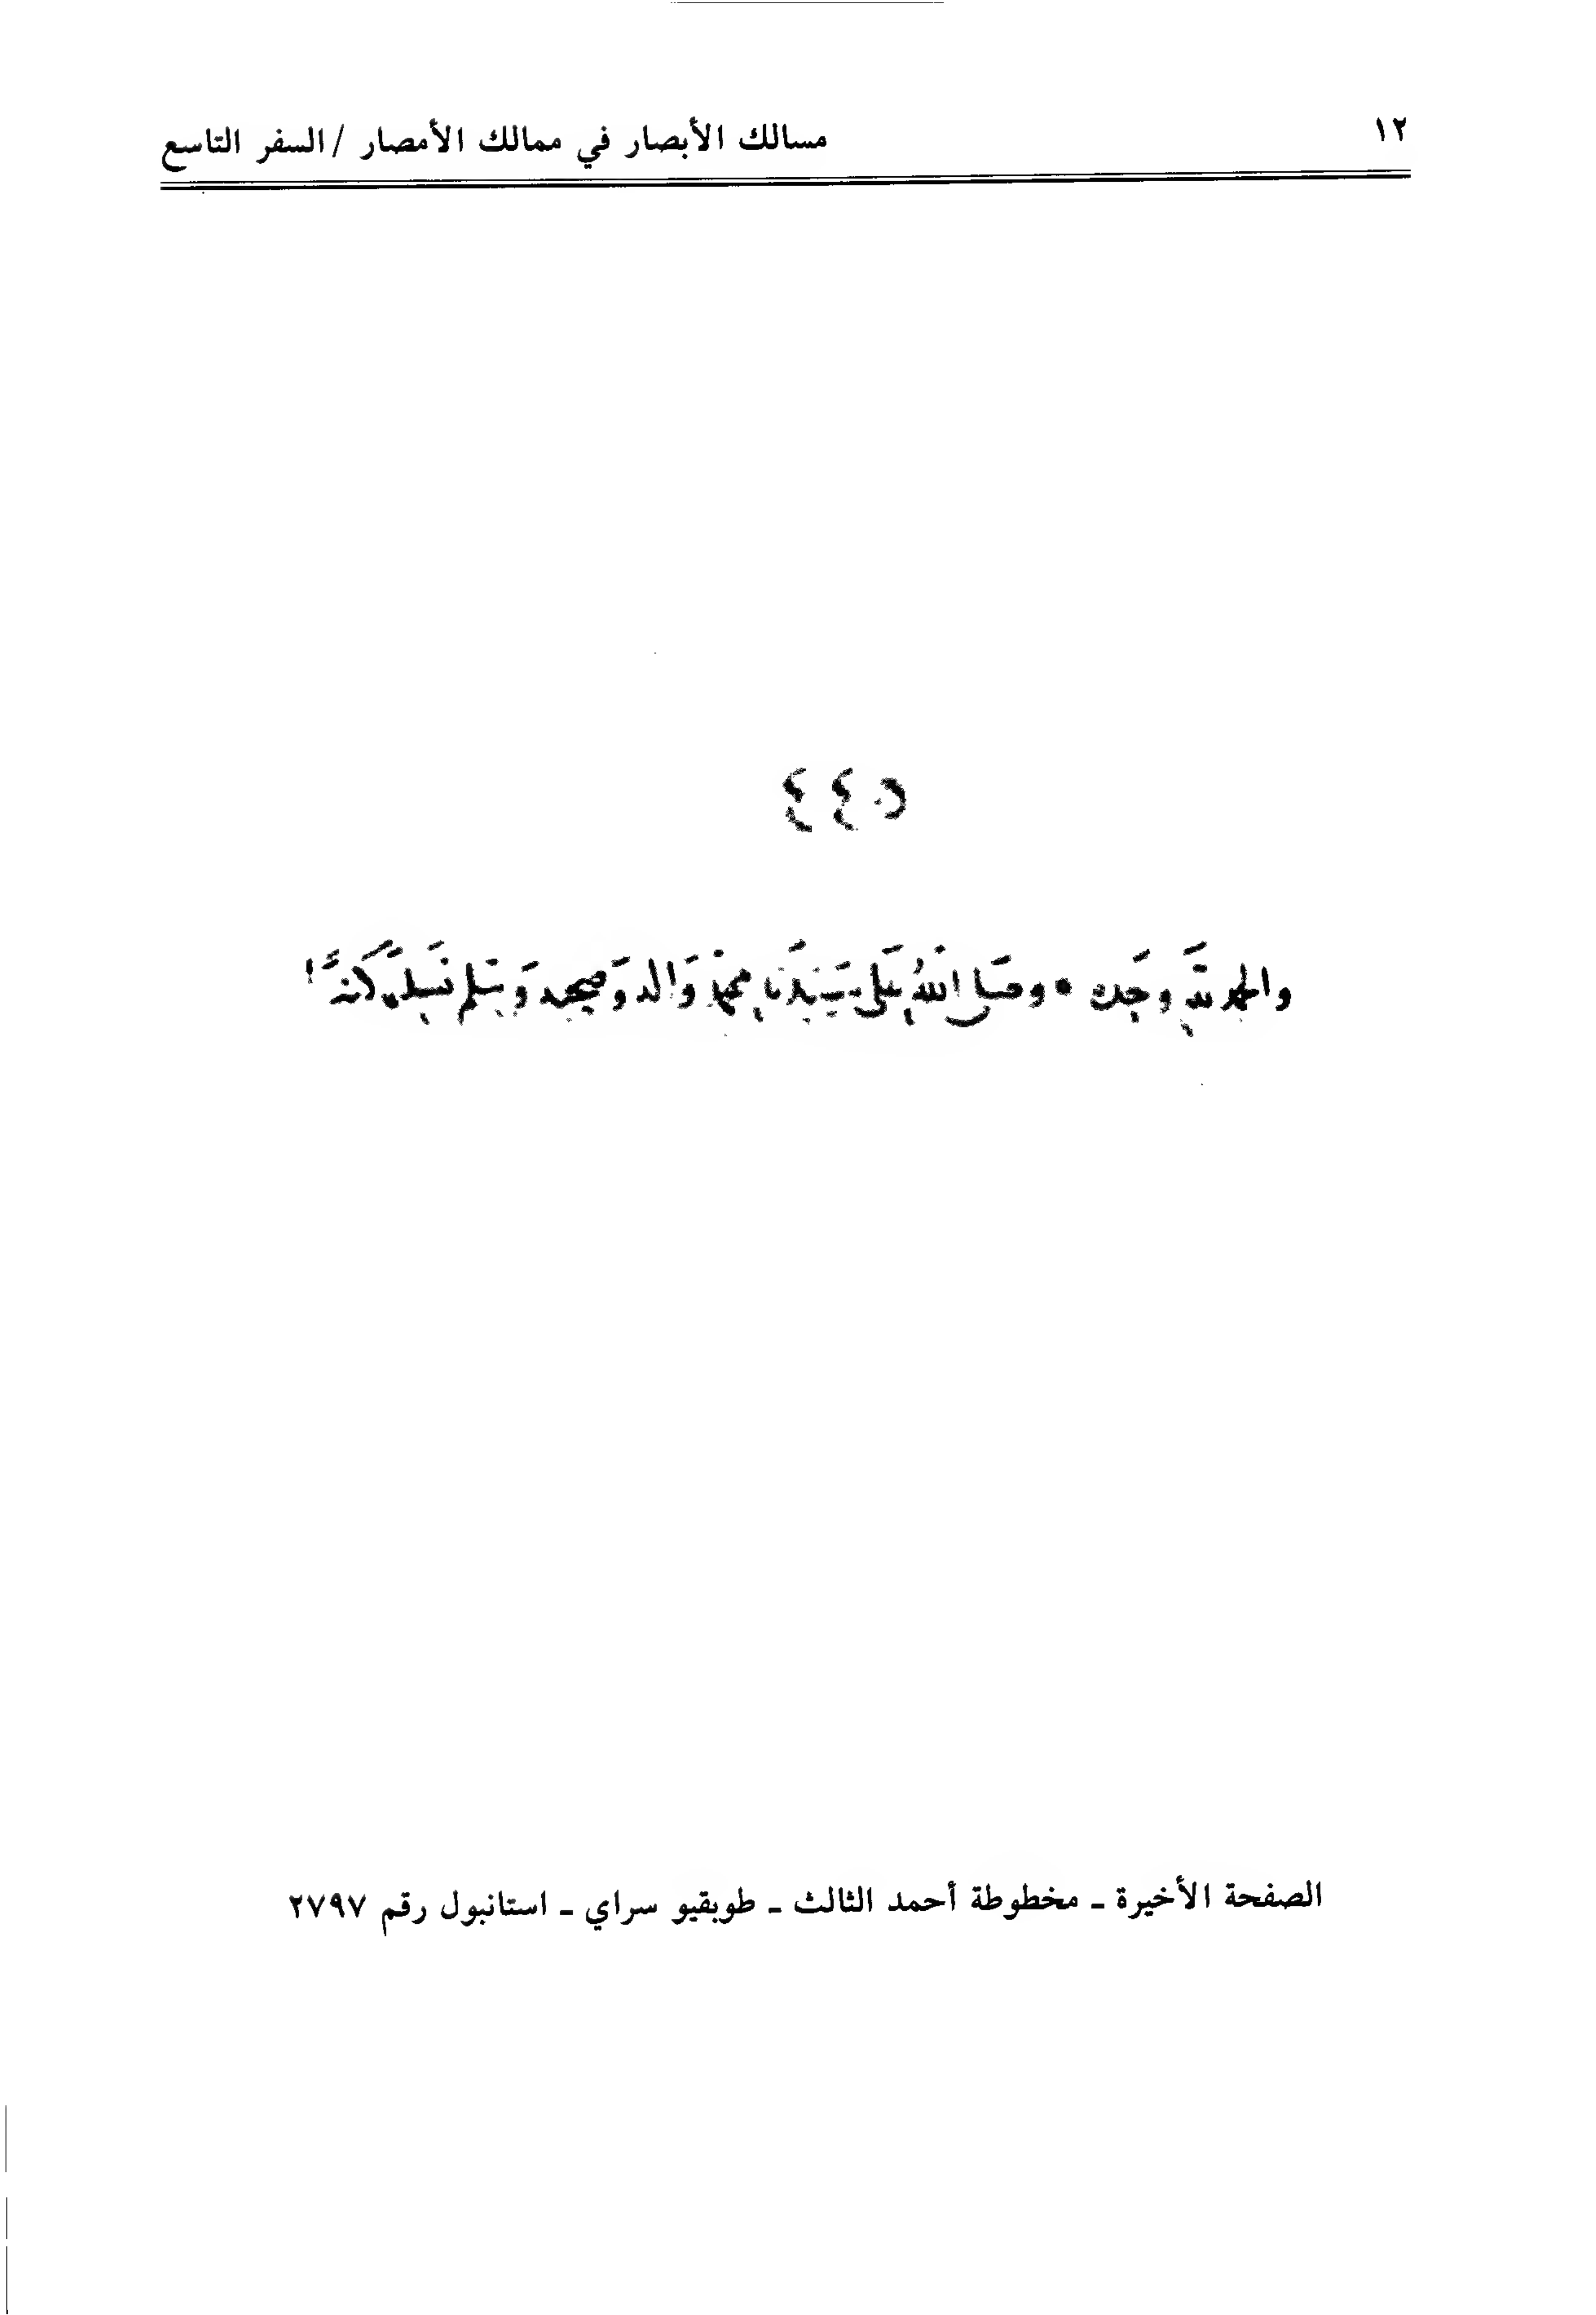 ١٢ مسالك الأبصار في ممالك الأمصار / السفر التاسع
٤٤
والحمد لله وحده • وصلى الله على سيدنا محمد وآله وصحبه وسلم تسليما كثيرا
الصفحة الأخيرة ـ مخطوطة أحمد الثالث ـ طوبقيو سراي ـ استانبول رقم ٢٧٩٧